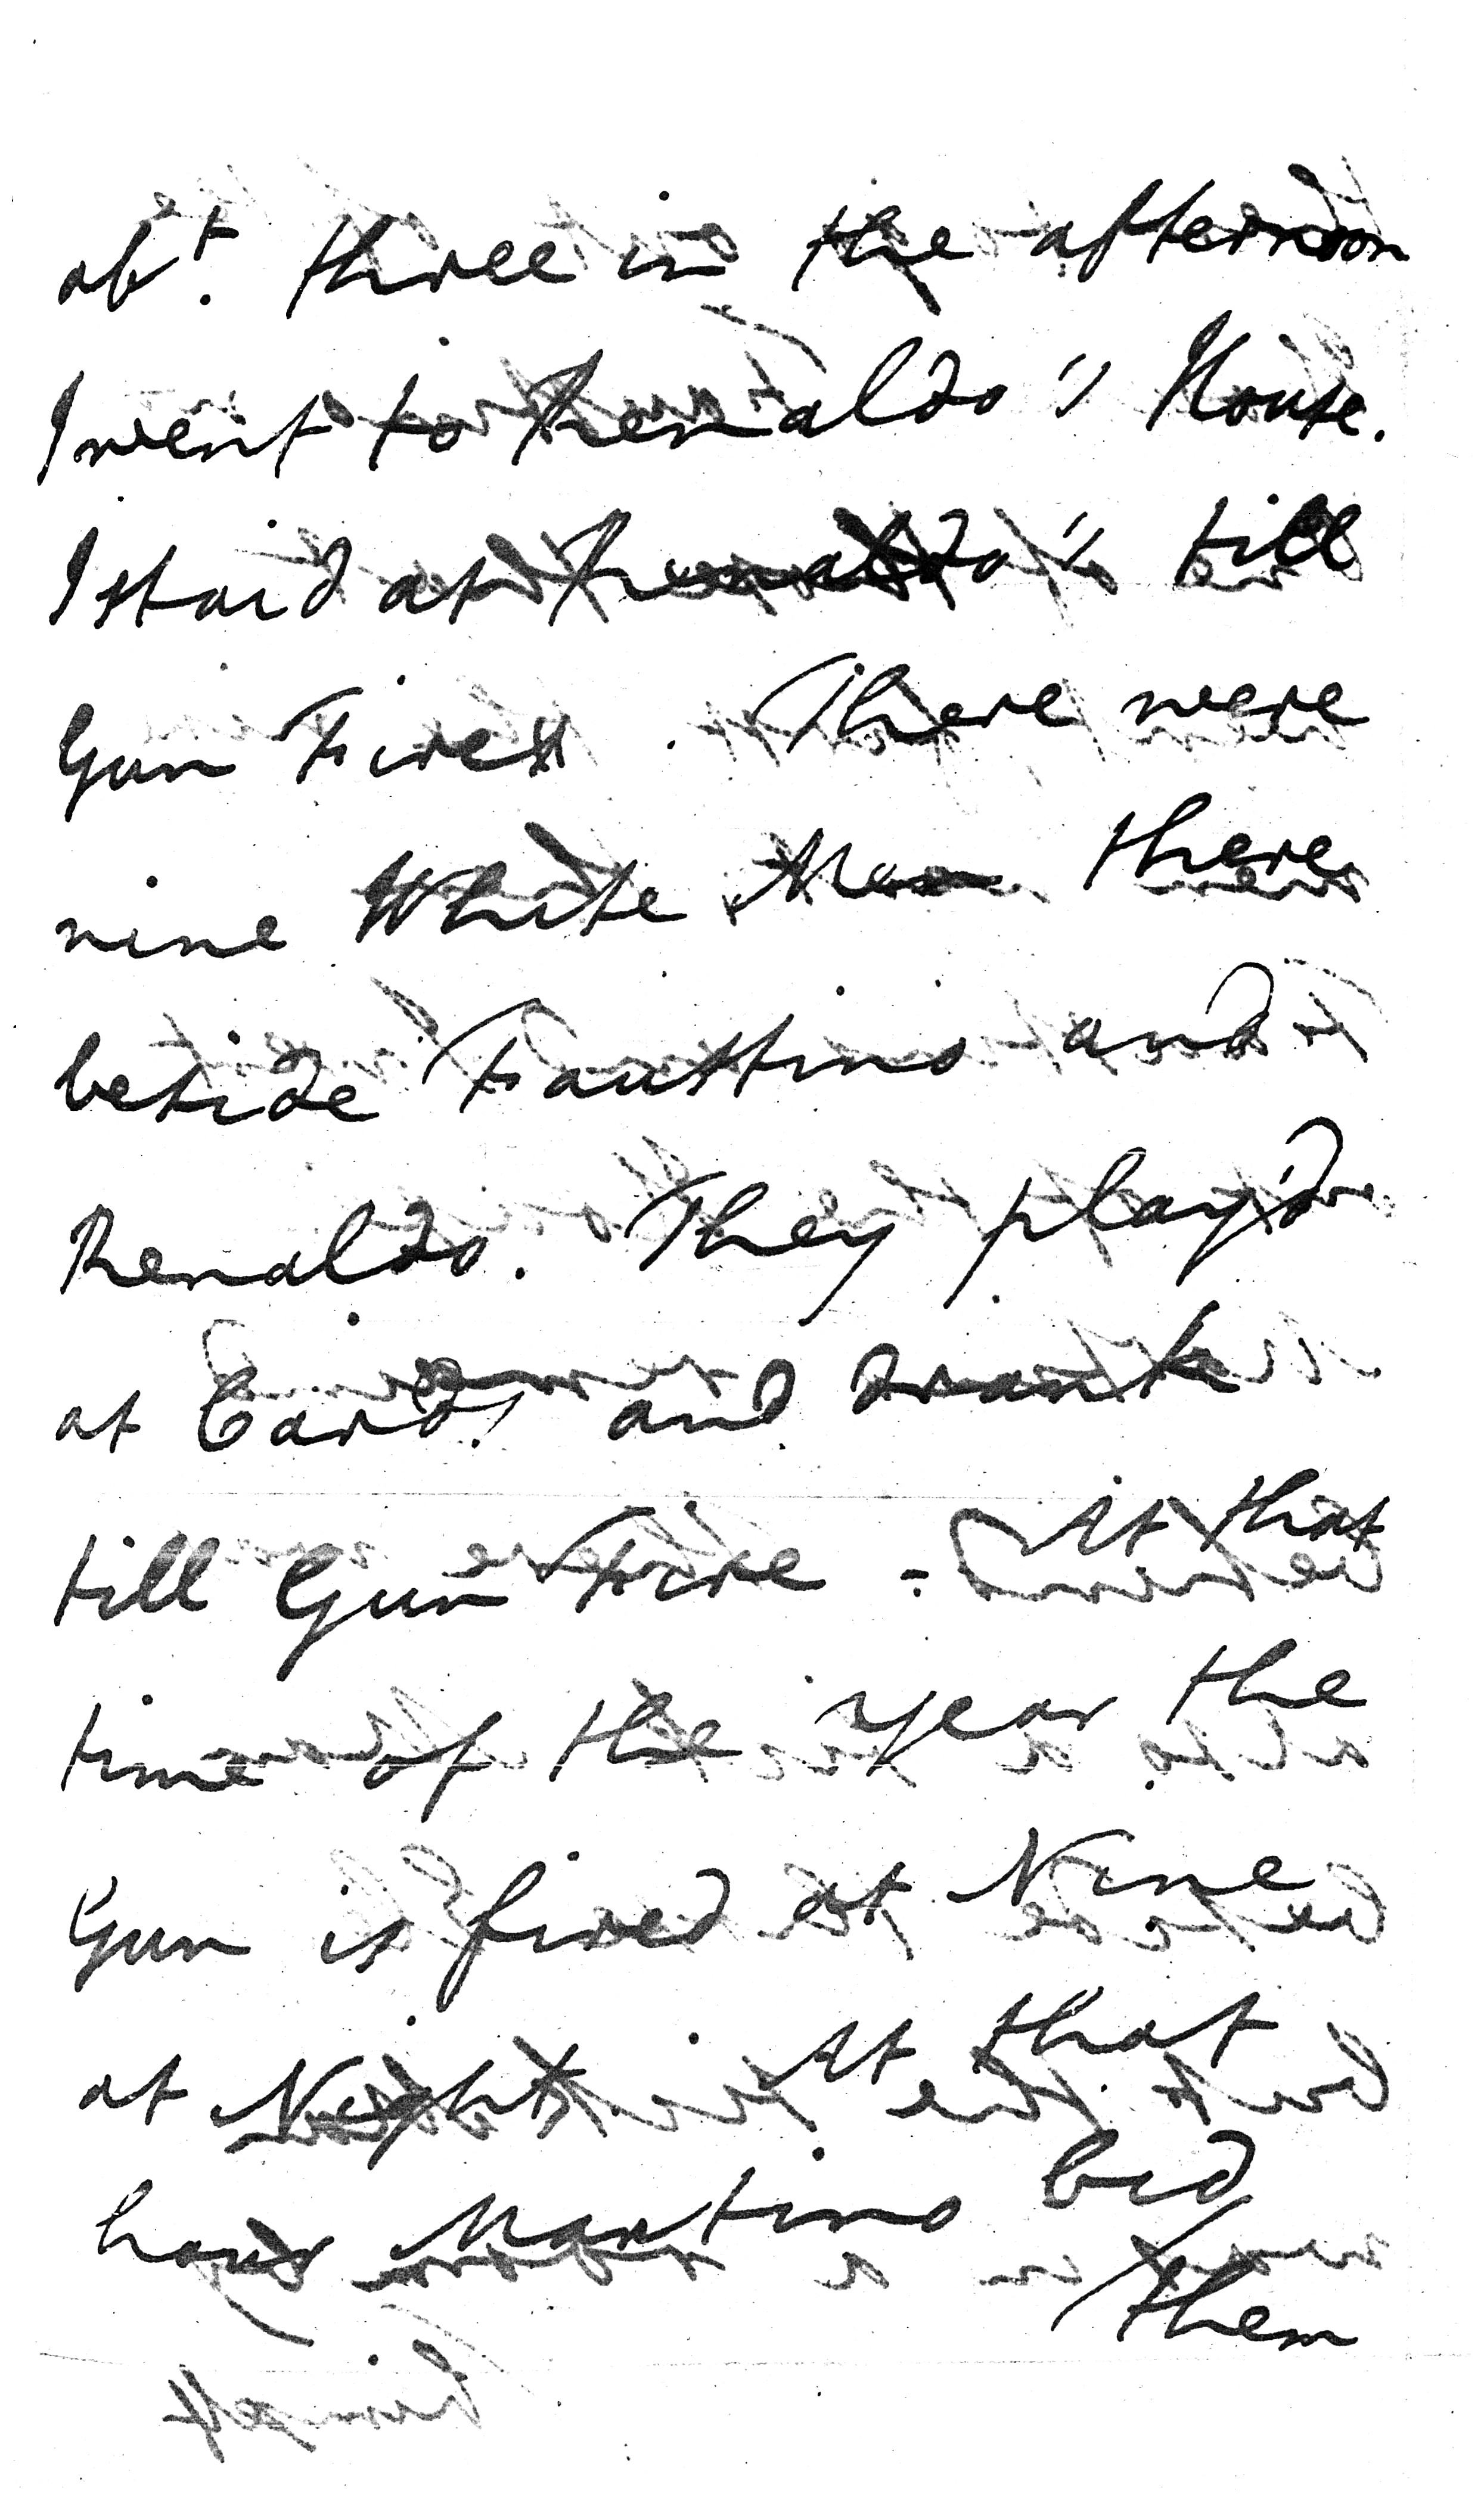 abt. three in the afternoon
I went to Renaldo's House.
I staid at Renaldo's till
Gun Fires. There were
nine White Men there
beside Faustino and
Renaldo. They play'd
at Cards and drank
till Gun Fire - At that
time of the year the
Gun is fired at Nine
at Night. At that
hour Martino bid
them